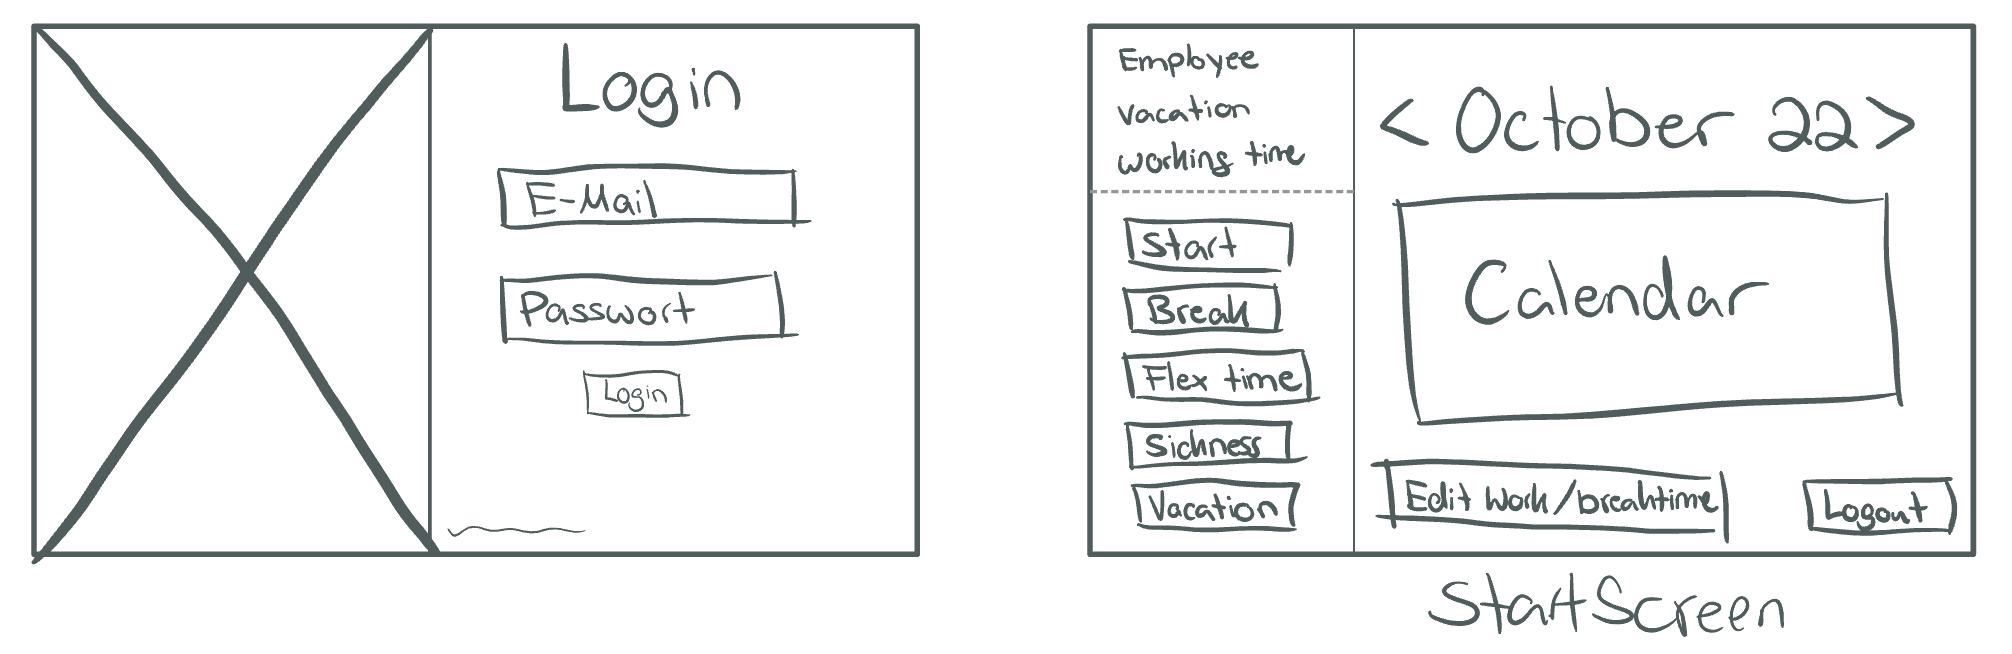 Login
E-Mail
Passwort
Login
Employee
vacation
working time
Start
Break
Flex time
Sickness
Vacation
< October 22 >
Calendar
Edit work/breaktime
Logout
StartScreen